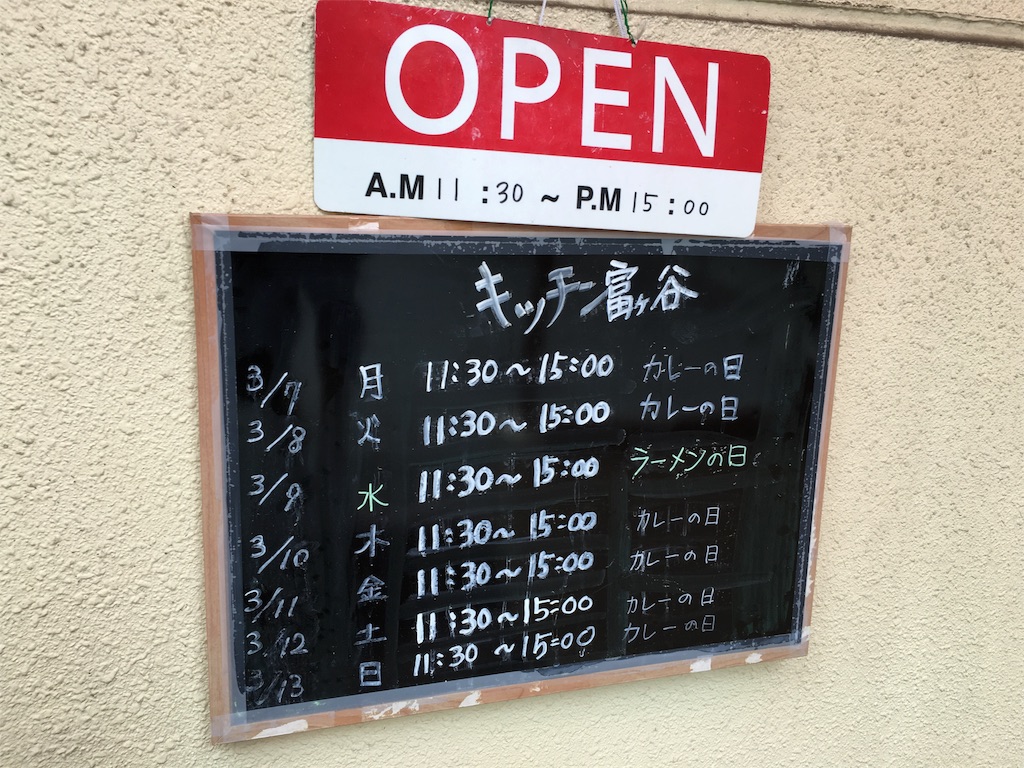 OPEN
A.M 11:30 ~ P.M 15:00
キッチー富ヶ谷
3/7 月 11:30~15:00 カレーの日
3/8 火 11:30~15:00 カレーの日
3/9 水 11:30~15:00 ラーメンの日
3/10 木 11:30~15:00 カレーの日
3/11 金 11:30~15:00 カレーの日
3/12 土 11:30~15:00 カレーの日
3/13 日 11:30~15:00 カレーの日